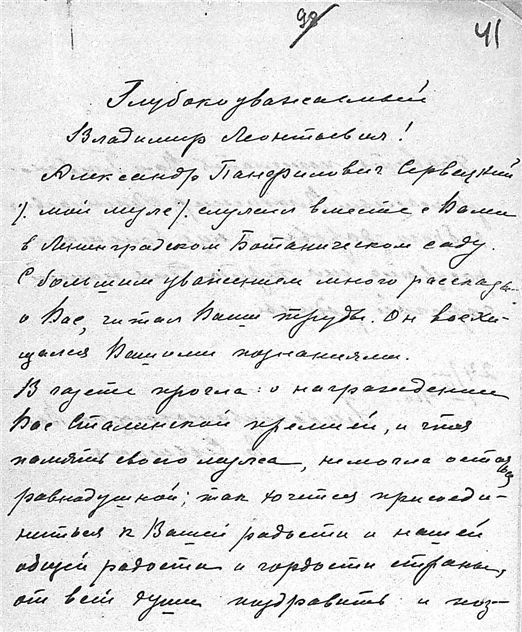 98
41
Глубокоуважаемый
Владимир Леонтьевич!
Александр Панфилович Сервецкий
/. мой муж ./ служил вместе с Вами
в Ленинградском Ботаническом саду.
С большим уважением много рассказы-
о Вас, читал Ваши труды. Он восхи-
щался Вашими познаниями.
В газете прочла: о награждении
Вас Сталинской премией, и чтя
память своего мужа, не могла остаться
равнодушной; так хочется присоеди-
ниться к Вашей радости и нашей
общей радости и гордости страны,
от всей души поздравить и поз-